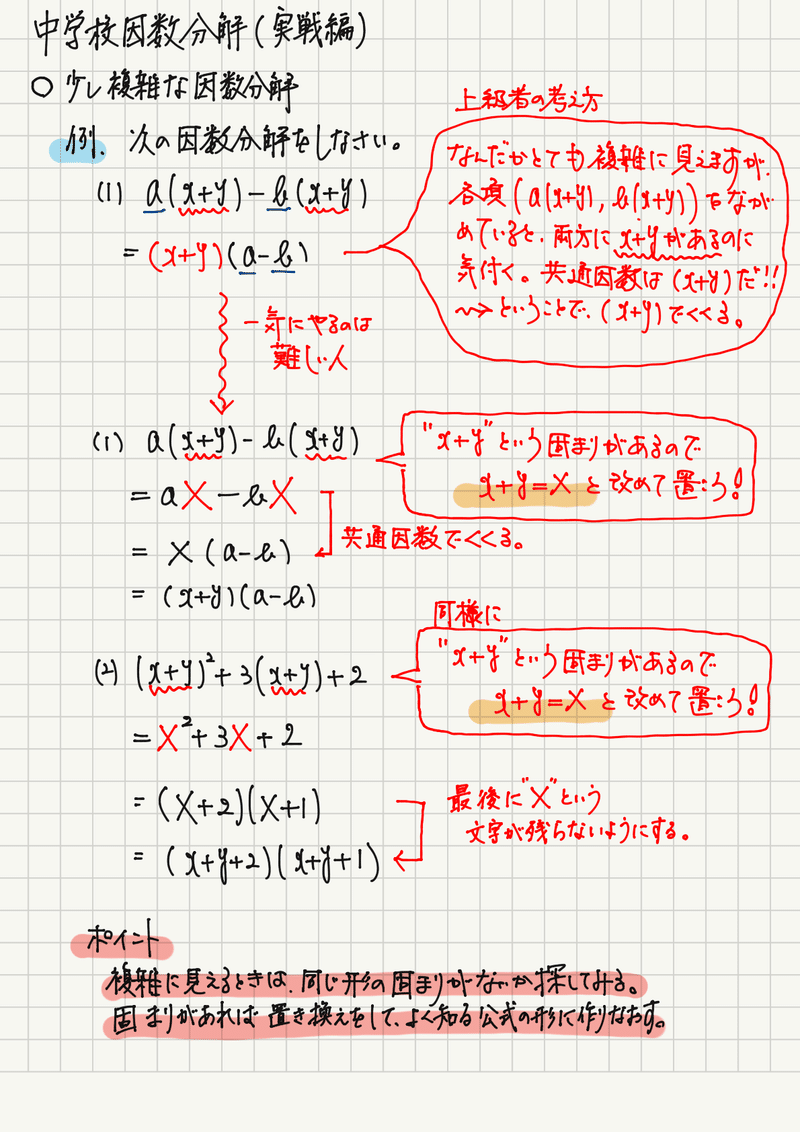 中学校因数分解(実戦編)
○ 少し複雑な因数分解
例. 次の因数分解をしなさい。
(1) a(x+y)-b(x+y)
=(x+y)(a-b)
上級者の考え方
なんだかとても複雑に見えますが、
各項(a(x+y), b(x+y))をなが
めていると、両方にx+yがあるのに
気付く。共通因数は(x+y)だ!!
〜〜>ということで、(x+y)でくくる。
一気にやるのは
難しい人
(1) a(x+y)-b(x+y)
= aX-bX
= X(a-b)
= (x+y)(a-b)
"x+y"という固まりがあるので
x+y=Xと改めて置こう!
共通因数でくくる。
(2) (x+y)²+3(x+y)+2
=X²+3X+2
= (X+2)(X+1)
= (x+y+2)(x+y+1)
同様に
"x+y"という固まりがあるので
x+y=Xと改めて置こう!
最後に"X"という
文字が残らないようにする。
ポイント
複雑に見えるときは、同じ形の固まりがないか探してみる。
固まりがあれば置き換えをして、よく知る公式の形に作りなおす。